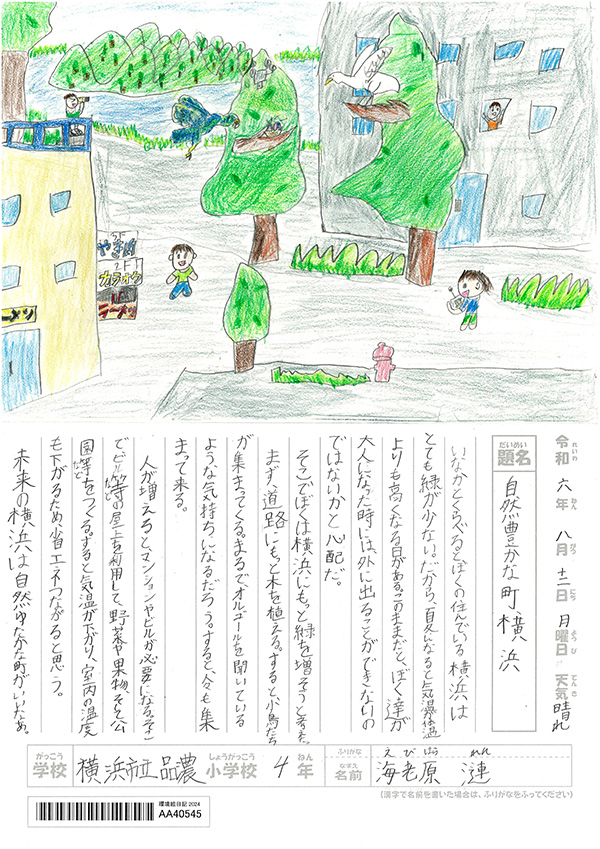 2F
やきめし
2F↑
カラオケ
ラーメン
ーメン
れいわ ねん がつ にち ようび てんき
令和 六年 八月 十二日 月曜日 天気 晴れ
だいめい
題名
自然豊かな町横浜
いなかとくらべるとぼくの住んでいる横浜は
とても緑が少ない。だから、夏になると気温が体温
よりも高くなる日がある。このままだと、ぼく達が
大人になった時には外に出ることができないの
ではないかと心配だ。
そこでぼくは横浜にもっと緑を増そうと考えた。
まず、道路にもっと木を植える。すると小鳥たち
が集まってくる。まるで、オルゴールを聞いている
ような気持ちになるだろう。すると、人々も集
まって来る。
人が増えると、マンションやビルが必要になる。そこ
でビル等の屋上を利用して、野菜や果物、そして公
園等をつくる。すると気温が下がり、室内の温度
も下がるため、省エネつながると思う。
未来の横浜は自然ゆたかな町がいいなあ。
がっこう しょうがっこう ねん ふりがな えびはら れん
学校 横浜市立品濃 小学校 4年 なまえ 名前 海老原 漣
(漢字で名前を書いた場合は、ふりがなをふってください)
環境絵日記2024
AA40545